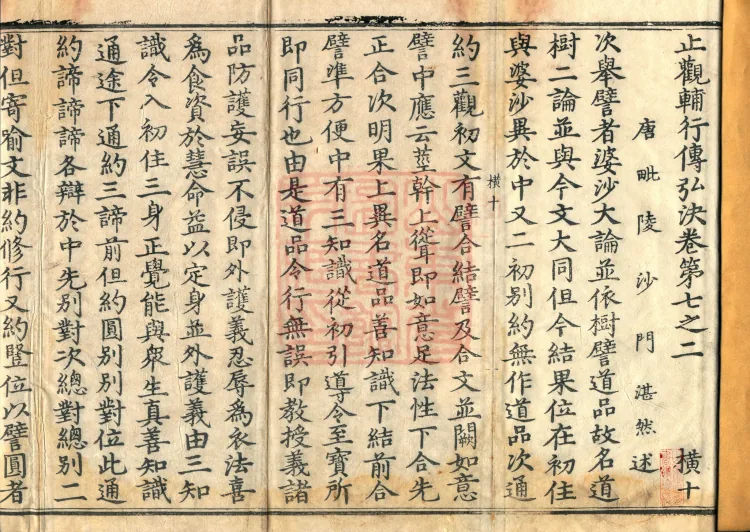 止觀輔行傳弘決卷第七之二　橫十
唐毗陵沙門湛然述
次舉譬者婆沙大論並依樹譬道品故名道
樹二論並與今文大同但今結果位在初住
與婆沙異於中又二初別約無作道品次通
橫十
約三觀初文有譬合結譬及合文並闕如意
譬中應云莖幹上聳即如意足法性下合先
正合次明果上異名道品善知識下結前合
譬準方便中有三知識從初引導令至寶所
即同行也由是道品令行無誤即教授義諸
品防護妄誤不侵即外護義忍辱為衣法喜
為食資於慧命益以定身並外護義由三知
識令入初住三身正覺能與眾生真善知識
通途下通約三諦前但約圓別別對位此通
約諦諦諦各辯於中先別對次總對總別二
對但寄喻文非約修行又約豎位以譬圓者